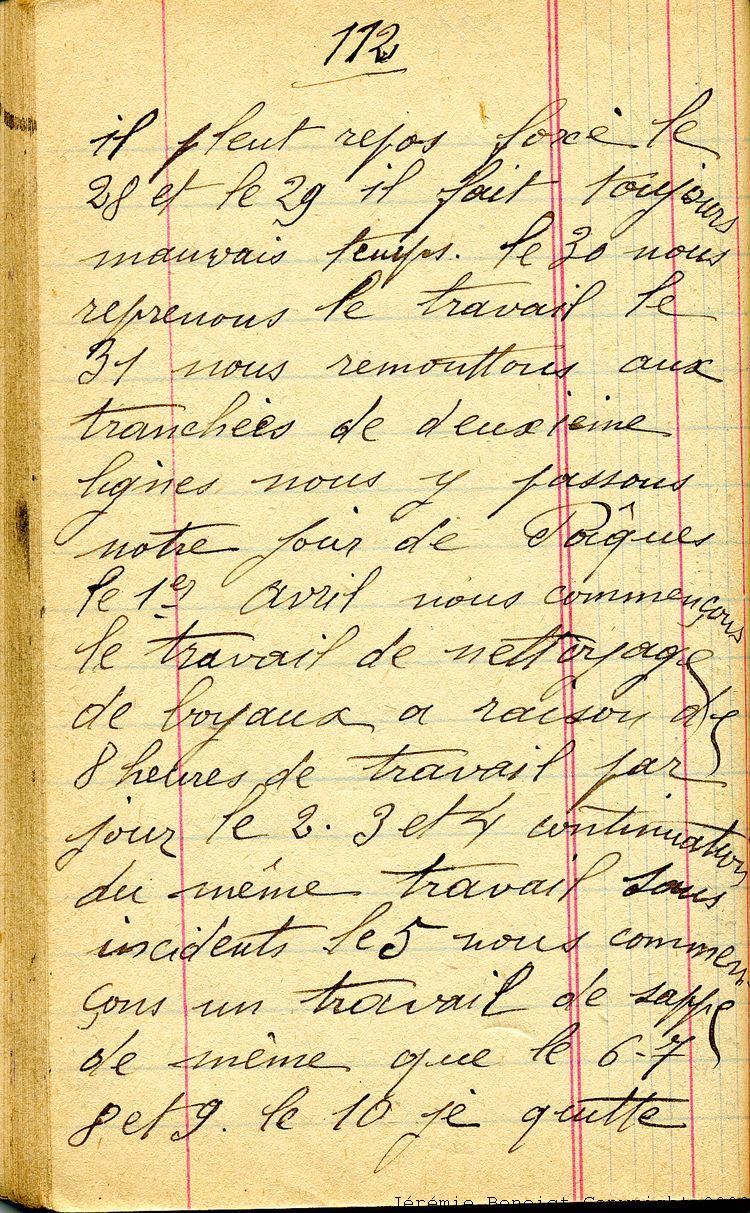 112
il pleut repos forcé le
28 et le 29 il fait toujours
mauvais temps. le 30 nous
reprenons le travail le
31 nous remonttons aux
tranchées de deuxieme
lignes nous y passons
notre jour de Pâques
le 1er avril nous commençons
le travail de nettoyage
de boyaux a raison de
8 heures de travail par
jour le 2. 3 et 4 continuation
du même travail sans
incidents le 5 nous commen
çons un travail de sappe
de même que le 6-7
8 et 9. le 10 je quitte
Jérémie Benoist Copyright